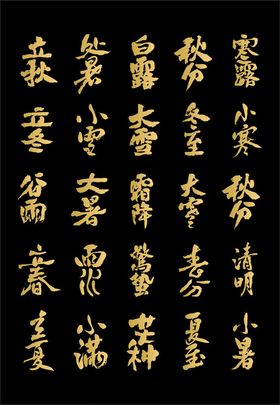 立秋 处暑 白露 秋分 寒露
立冬 小雪 大雪 冬至 小寒
谷雨 大暑 霜降 大寒 秋分
立春 雨水 驚蛰 春分 清明
立夏 小滿 芒种 夏至 小暑